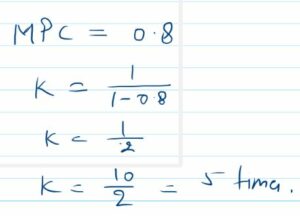 MPC = 0.8
K = 1/(1-0.8)
K = 1/.2
K = 10/2 = 5 time.